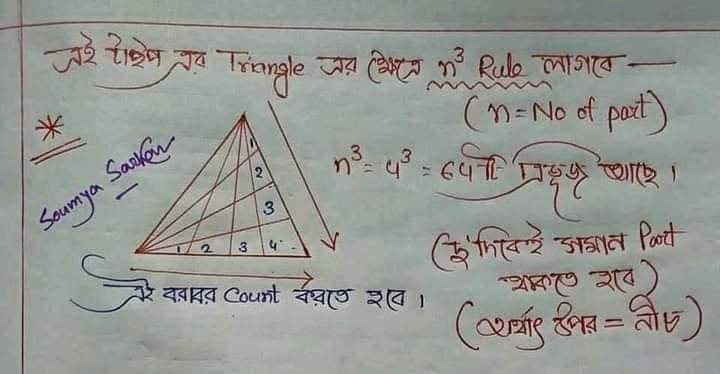 এই টাইপ এর Triangle এর ক্ষেত্রে n³ Rule লাগবে —
(n = No of part)
n³ = 4³ = 64টি ত্রিভুজ আছে।
Soumya Sarkar
1
2
3
1 2 3 4
(দু'দিকেই সমান Part
থাকতে হবে)
(অর্থাৎ উপর = নীচ)
এই বরাবর Count করতে হবে।